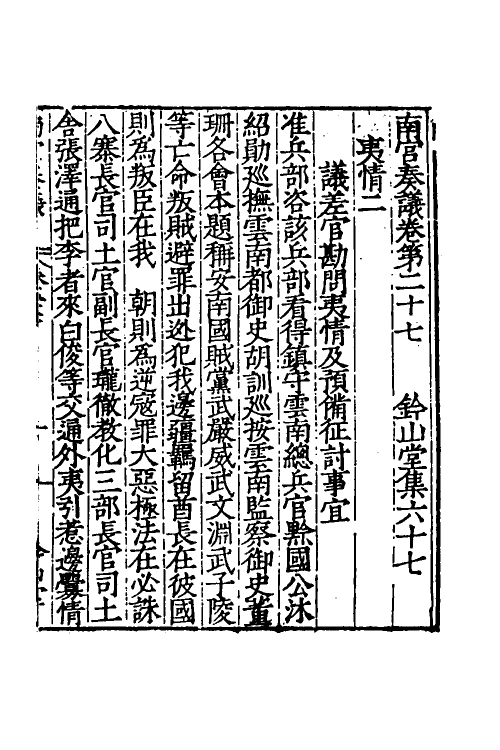 南宮奏議卷第二十七 鈐山堂集六十七
夷情二
議差官勘問夷情及預備征討事宜
准兵部咨該兵部看得鎮守雲南總兵官黔國公沐
紹勛巡撫雲南都御史胡訓巡按雲南監察御史董
珊各會本題稱安南國賊黨武嚴威武文淵武子陵
等亡命叛賊避罪出逃犯我邊疆羈留酋長在彼國
則為叛臣在我 朝則為逆寇罪大惡極法在必誅
八寨長官司土官副長官瓏徹教化三部長官司土
舍張澤通把李者來白俊等交通外夷引惹邊釁情